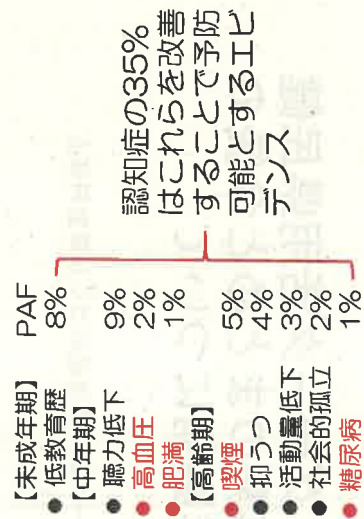 【未成年期】 PAF
● 低教育歴 8%
【中年期】
● 聴力低下 9%
● 高血圧 2%
● 肥満 1%
【高齢期】
● 喫煙 5%
● 抑うつ 4%
● 活動量低下 3%
● 社会的孤立 2%
● 糖尿病 1%
認知症の35%
はこれらを改善
することで予防
可能とするエビ
デンス